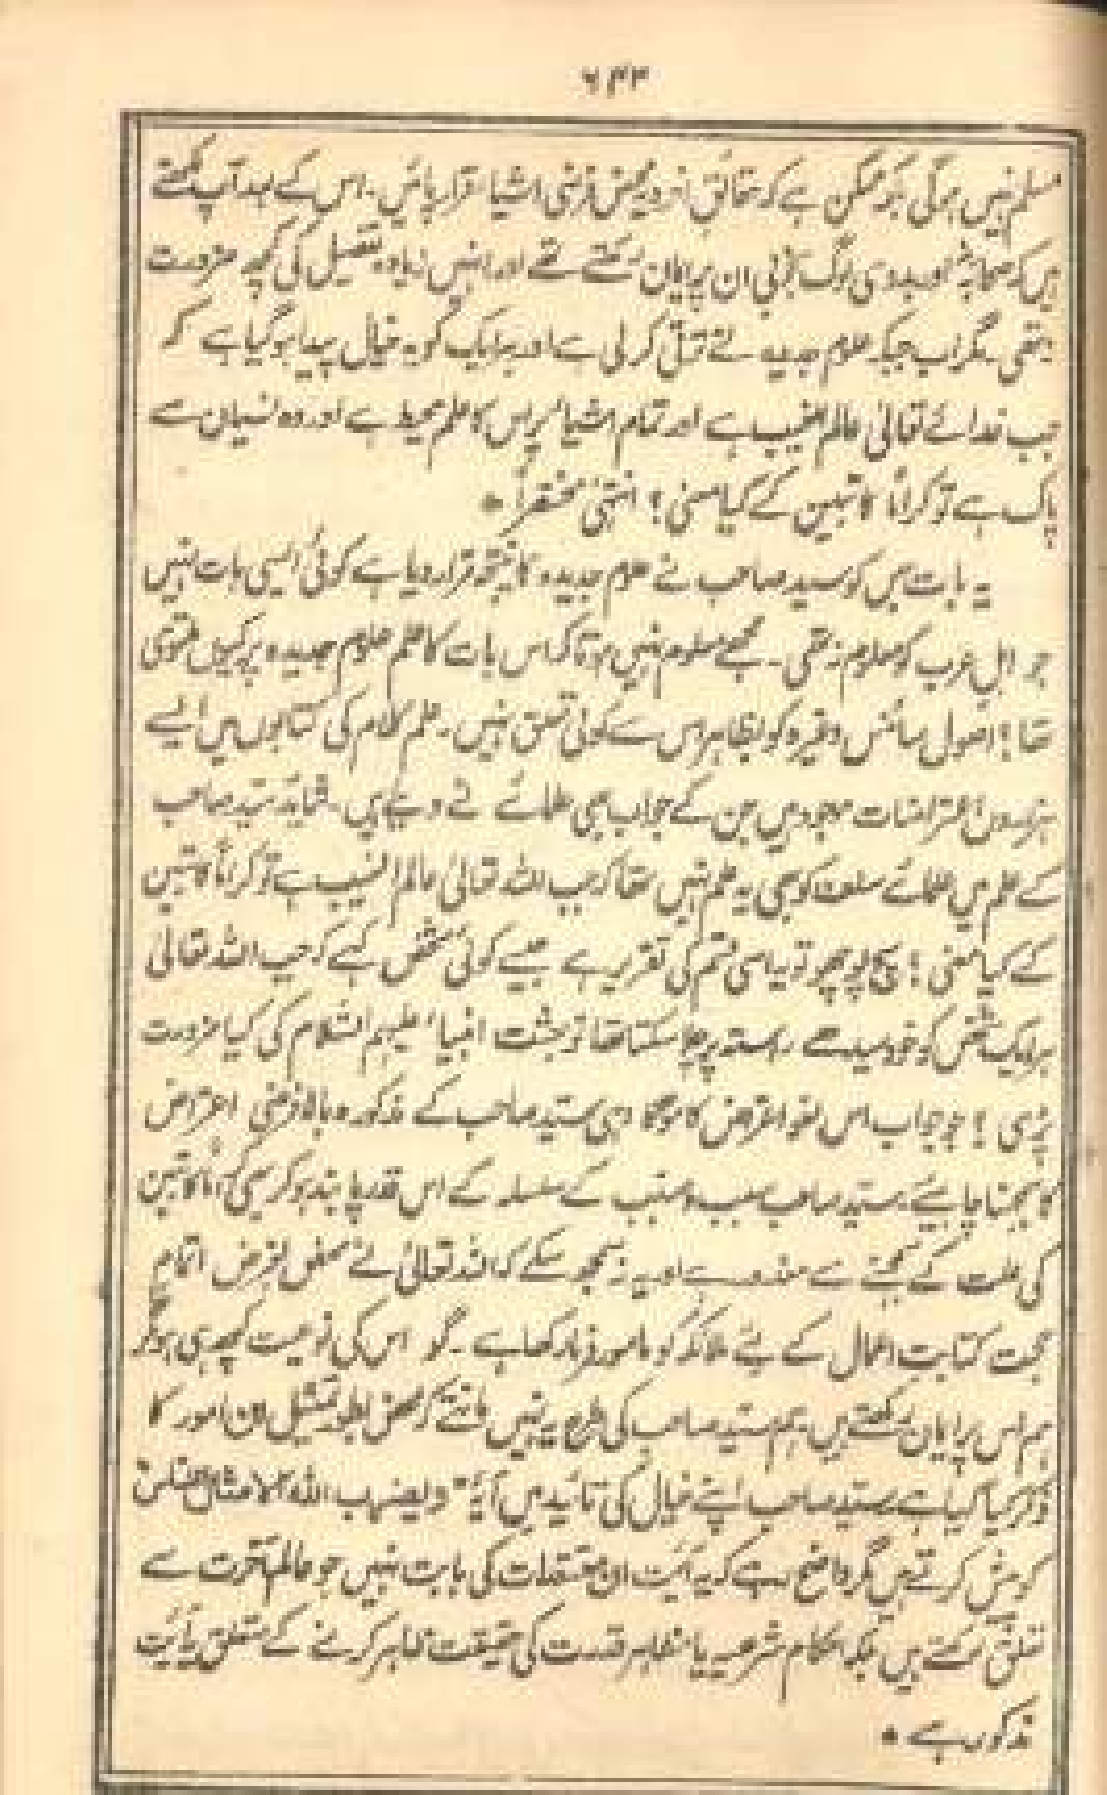 ۶۴۳
مسلم نہیں ہوگی بلکہ ممکن ہے کہ حقائق اخرویہ محض فرضی اشیاء قرار پائیں۔ اس کے بعد آپ لکھتے
ہیں کہ صحابہؓ اور بدوی لوگ بخوبی ان پر ایمان رکھتے تھے اور انہیں زیادہ تفصیل کی کچھ ضرورت
نہ تھی۔ مگر اب جبکہ علوم جدیدہ نے ترقی کر لی ہے اور ہر ایک کو یہ خیال پیدا ہو گیا ہے کہ
جب خدائے تعالیٰ عالم الغیب ہے اور تمام اشیاء پر اس کا علم محیط ہے اور وہ نسیان سے
پاک ہے تو کراماً کاتبین کے کیا معنی؟ انتہیٰ مختصراً *
یہ بات جس کو سید صاحب نے علوم جدیدہ کا نتیجہ قرار دیا ہے کوئی ایسی بات نہیں
جو اہل عرب کو معلوم نہ تھی۔ مجھے معلوم نہیں ہوتا کہ اس بات کا علم علوم جدیدہ پر کیوں ملتوی
تھا؟ اصول سائنس وغیرہ کو بظاہر اس سے کوئی تعلق نہیں۔ علم کلام کی کتابوں میں ایسے
ہزاروں اعتراضات موجود ہیں جن کے جواب بھی علمائے نے دیئے ہیں۔ شاید سید صاحب
کے علم میں علمائے سلف کو بھی یہ علم نہیں تھا کہ جب اللہ تعالیٰ عالم الغیب ہے تو کراماً کاتبین
کے کیا معنی؟ سچ پوچھو تو یہ اسی قسم کی تقریر ہے جیسے کوئی شخص کہے کہ جب اللہ تعالیٰ
ہر ایک شخص کو خود سیدھے رستہ پر چلا سکتا تھا تو بعثت انبیاء علیہم السّلام کی کیا ضرورت
پڑی؟ جو جواب اس لغو اعتراض کا ہوگا وہی سید صاحب کے مذکورہ بالا فرضی اعتراض
کا سمجھنا چاہیئے۔ سید صاحب سبب و مسبب کے سلسلہ کے اس قدر پابند ہو کر بھی کراماً کاتبین
کی علت کے سمجھنے سے معذور رہے اور یہ نہ سمجھ سکے کہ اللہ تعالیٰ نے محض بغرض اتمام
حجت کتابت اعمال کے لئے ملائکہ کو مامور فرما رکھا ہے۔ گو اس کی نوعیت کچھ ہی ہو مگر
ہم اس پر ایمان رکھتے ہیں۔ ہم سید صاحب کی طرح یہ نہیں مانتے کہ محض بطور تمثیل ان امور کا
ذکر کیا گیا ہے۔ سید صاحب اپنے خیال کی تائید میں آیۃ "ویضرب اللہ الامثال للناس"
کو پیش کرتے ہیں مگر واضح رہے کہ یہ آیت ان معتقدات کی بابت نہیں جو عالم آخرت سے
تعلق رکھتے ہیں بلکہ احکام شرعیہ یا مظاہر قدرت کی حقیقت ظاہر کرنے کے متعلق یہ آیت
مذکور ہے *